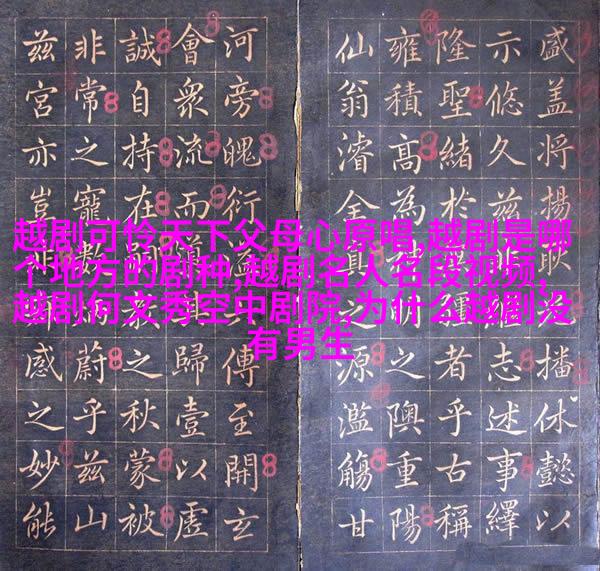 盛盖将揚耿播休懿以
示悠久兹志述事繹
隆聖緒於者乎古稱
雍積高為之隩重陽
仙翁濬全真之源濫觴甘
河旁魄衍傳至開玄
會衆流而歸壹以虛
誠自持在之秋蒙被
非常之寵數蔚乎兹山
兹宮亦豈非感之妙能
越剧可怜天下父母心原唱,越剧是哪
个地方的剧种,越剧名人名段视频,
越剧何文秀空中剧院,为什么越剧没
有男生